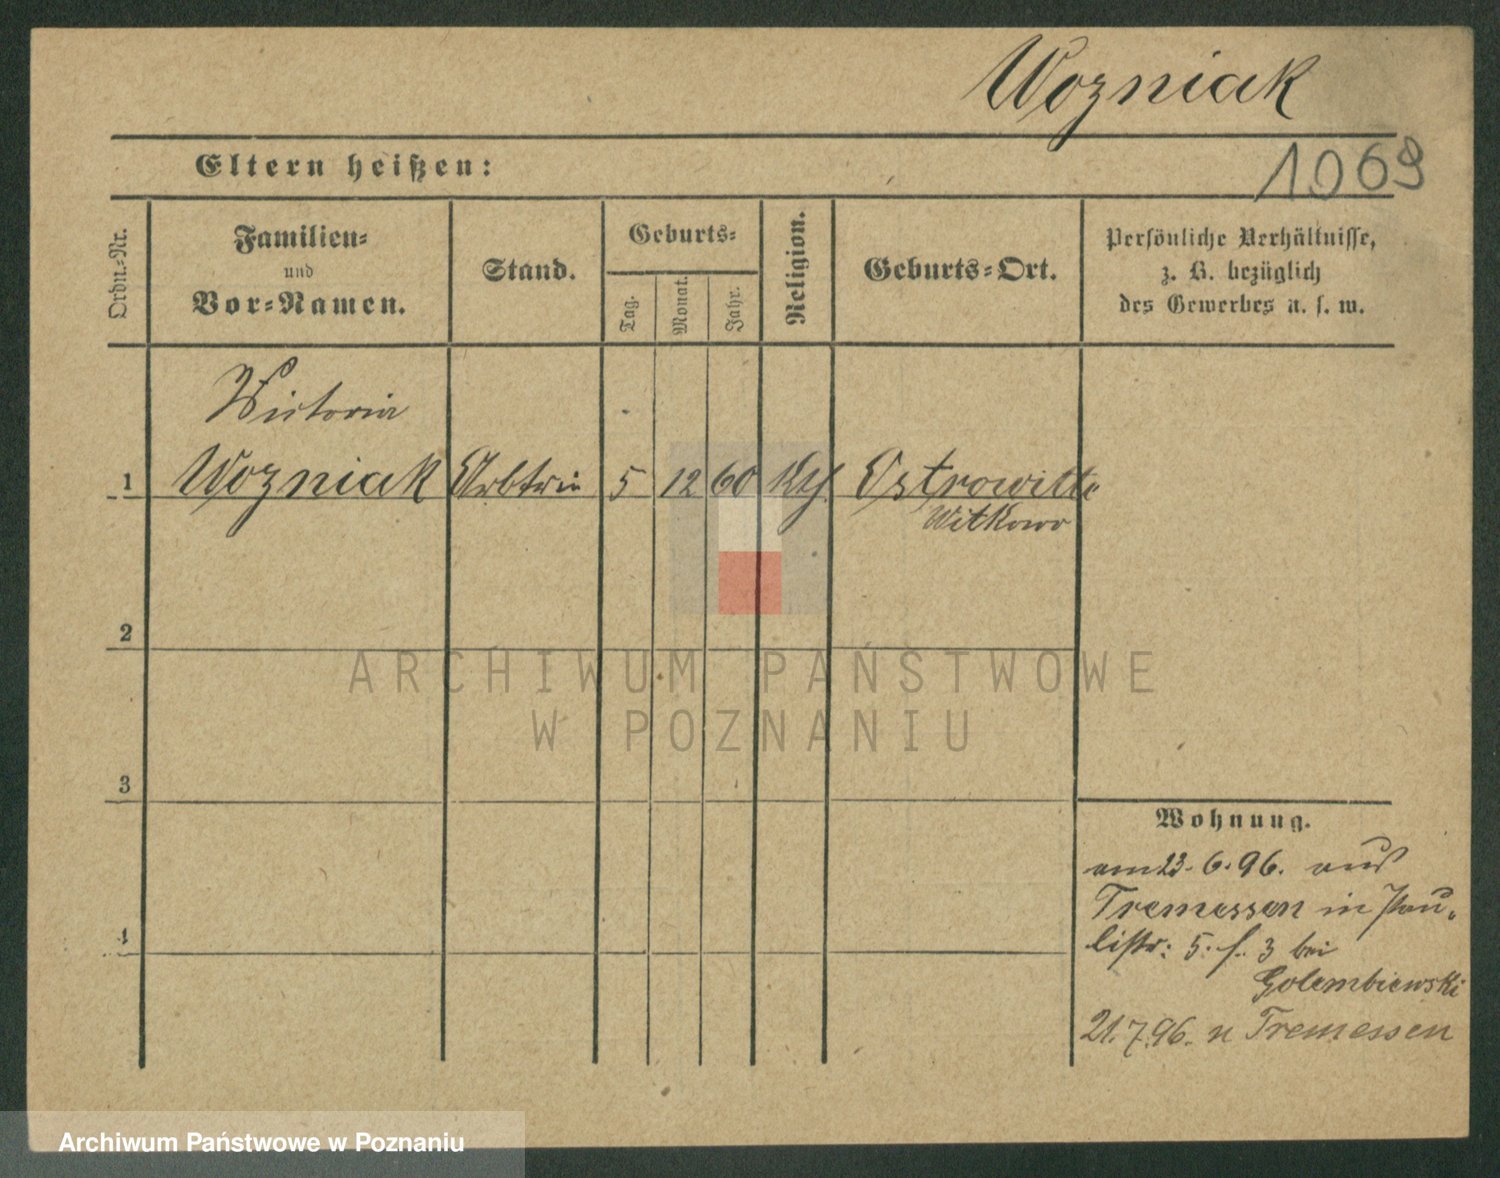 Wozniak
1069
Eltern heißen:
Ordn.-Nr.
Familien-
und
Vor-Namen.
Stand.
Geburts-
Tag.
Monat.
Jahr.
Religion.
Geburts-Ort.
Persönliche Verhältnisse,
z. B. bezüglich
des Gewerbes u. s. w.
Victoria
1 Wozniak Arbtrin 5 12 60 Kth Ostrowitte
Witkowo
2
3
4
Wohnung.
am 23.6.96. aus
Tremessen in Pau-
listr: 5. f. 3 bei
Golembiewski
21.7.96. n Tremessen
ARCHIWUM PAŃSTWOWE
W POZNANIU
Archiwum Państwowe w Poznaniu